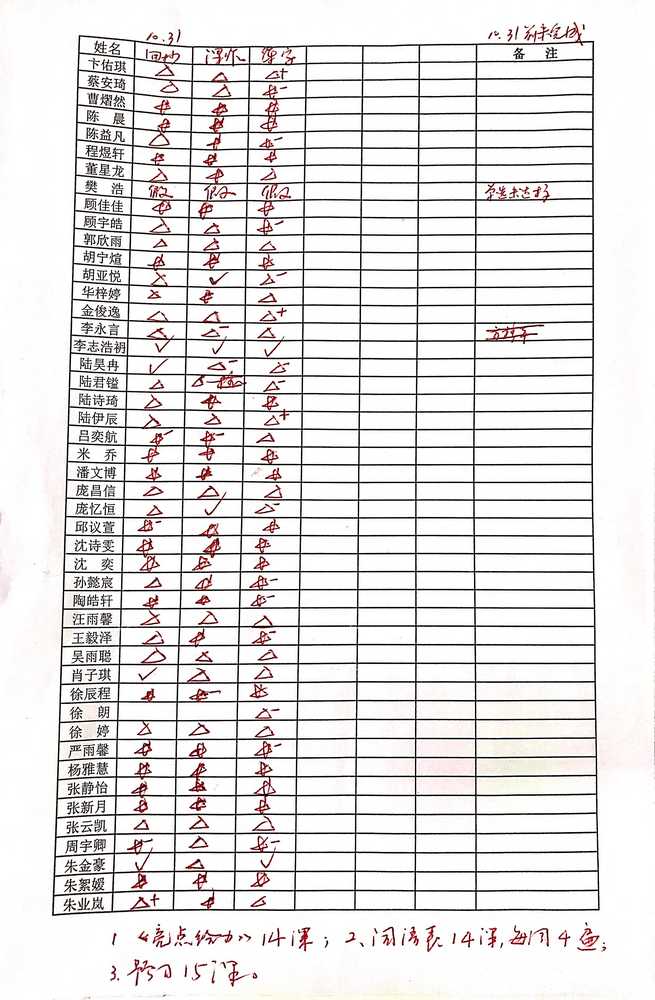 10.31 10.31前未完成
姓名 回物 课作 练字 备注
卞佑琪 △ △ △+
蔡安琦 △ △ #-
曹熠然 # # #
陈晨 # # #
陈益凡 △ # #-
程煜轩 # # #
董星龙 △ # △
樊浩 假 假 假
顾佳佳 # # #
顾宇皓 △ △ #-
郭欣雨 △ △ △
胡宁煊 # # #
胡亚悦 △ ✓ △-
华梓婷 △ # △
金俊逸 △ △ △+
李永言 △ △- △
李志浩礽 ✓ ✓ ✓
陆昊冉 ✓ △- △-
陆君镒 △ △- △-
陆诗琦 △ # #
陆伊辰 △ △ △+
吕奕航 #- #- △
米乔 # # #
潘文博 # # #
庞昌信 △ △ △
庞忆恒 △ ✓ △-
邱议萱 #- # #
沈诗雯 # # #
沈奕 # # #
孙懿宸 △ # #-
陶皓轩 # # #-
汪雨馨 △ △ △
王毅泽 △ # #-
吴雨聪 △ △ △
肖子琪 ✓ △ △
徐辰程 # #- #
徐朗 △-
徐婷 △ △ △
严雨馨 # # #-
杨雅慧 # # #
张静怡 # # #
张新月 # # #
张云凯 △ △ △
周宇卿 #- △ #-
朱金豪 ✓ △ ✓
朱絮媛 # # #
朱业岚 △+ # △
1《亮点给力》14课；2、阅读表14课，每周4画；
3.预习15课。